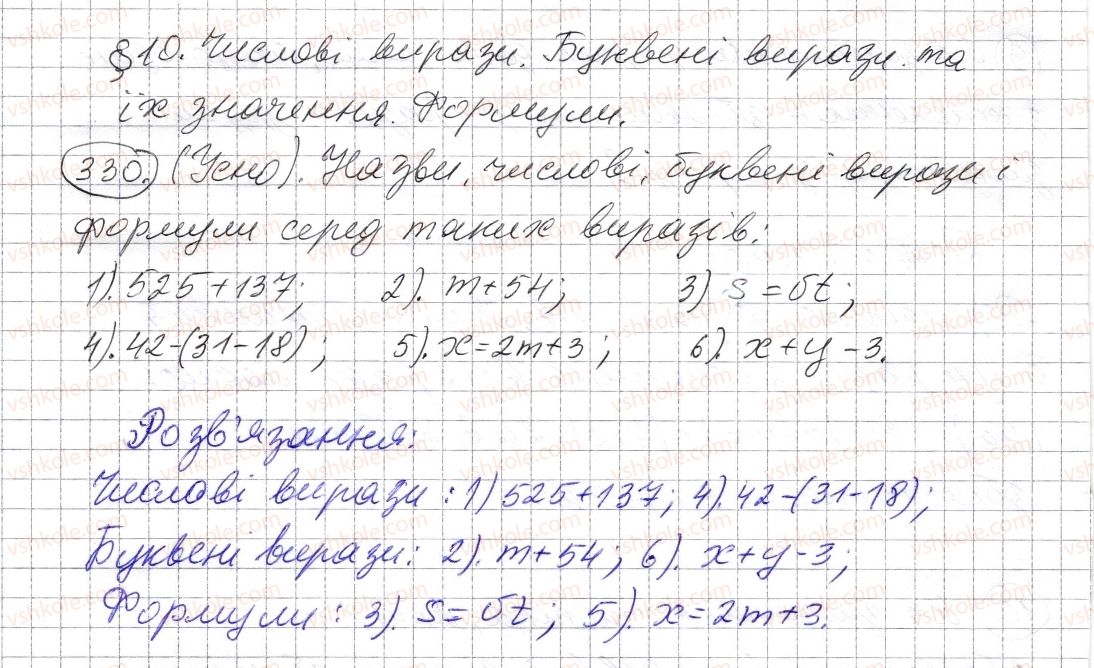 §10. Числові вирази. Буквені вирази та
їх значення. Формули.
330. (Усно). Назви числові, буквені вирази і
формули серед таких виразів:
1). 525+137; 2). m+54; 3) s=υt;
4). 42-(31-18); 5). x=2m+3; 6). x+y-3.
Розв'язання:
Числові вирази: 1) 525+137; 4). 42-(31-18);
Буквені вирази: 2). m+54; 6). x+y-3;
Формули: 3). s=υt; 5). x=2m+3.
vshkole.com